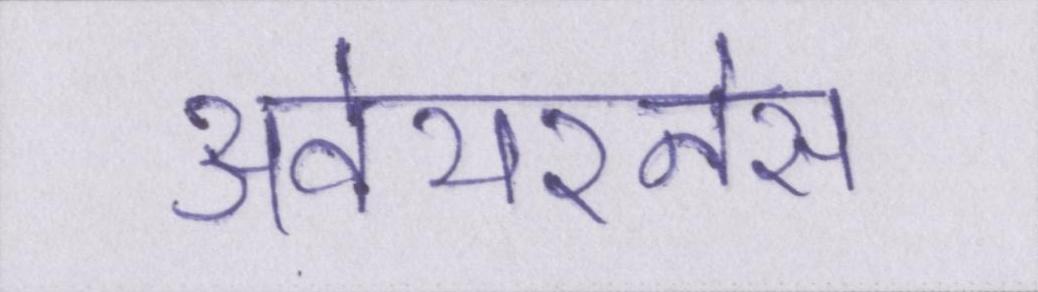 अवेयरनेस